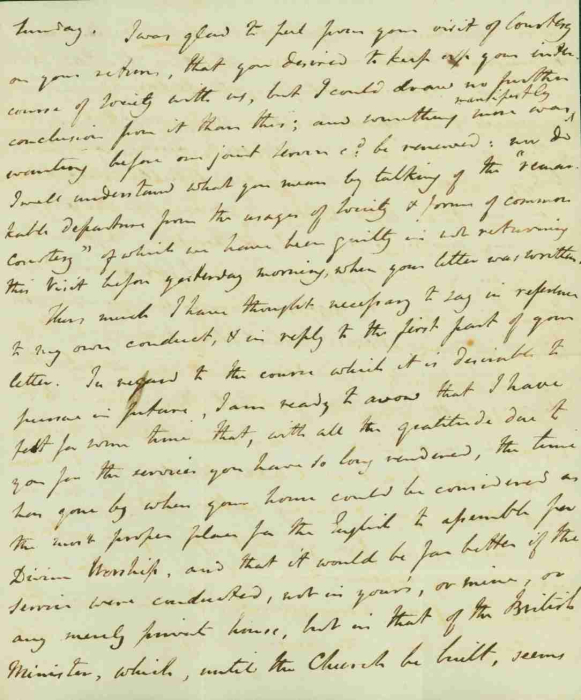 Sunday. I was glad to feel from your visit of Courtesy
on your return, that you desired to keep up your inter-
course of Society with us, but I could draw no further
conclusion from it than this; and something more was manifestly
wanting before our joint service cd. be renewed: nor do
I well understand what you mean by talking of the "remar-
kable departure from the usages of Society & forms of common
courtesy" of which we have been guilty in not returning
this visit before yesterday morning, when your letter was written.
Thus much I have thought necessary to say in reference
to my own conduct, & in reply to the first part of your
letter. In regard to the course which it is desirable to
pursue in future, I am ready to avow that I have
felt for some time that, with all the gratitude due to
you for the services you have so long rendered, the time
has gone by when your home could be considered as
the most proper place for the English to assemble for
Divine Worship, and that it would be far better if the
service were conducted, not in yours, or mine, or
any merely private house, but in that of the British
Minister, which, until the Church be built, seems